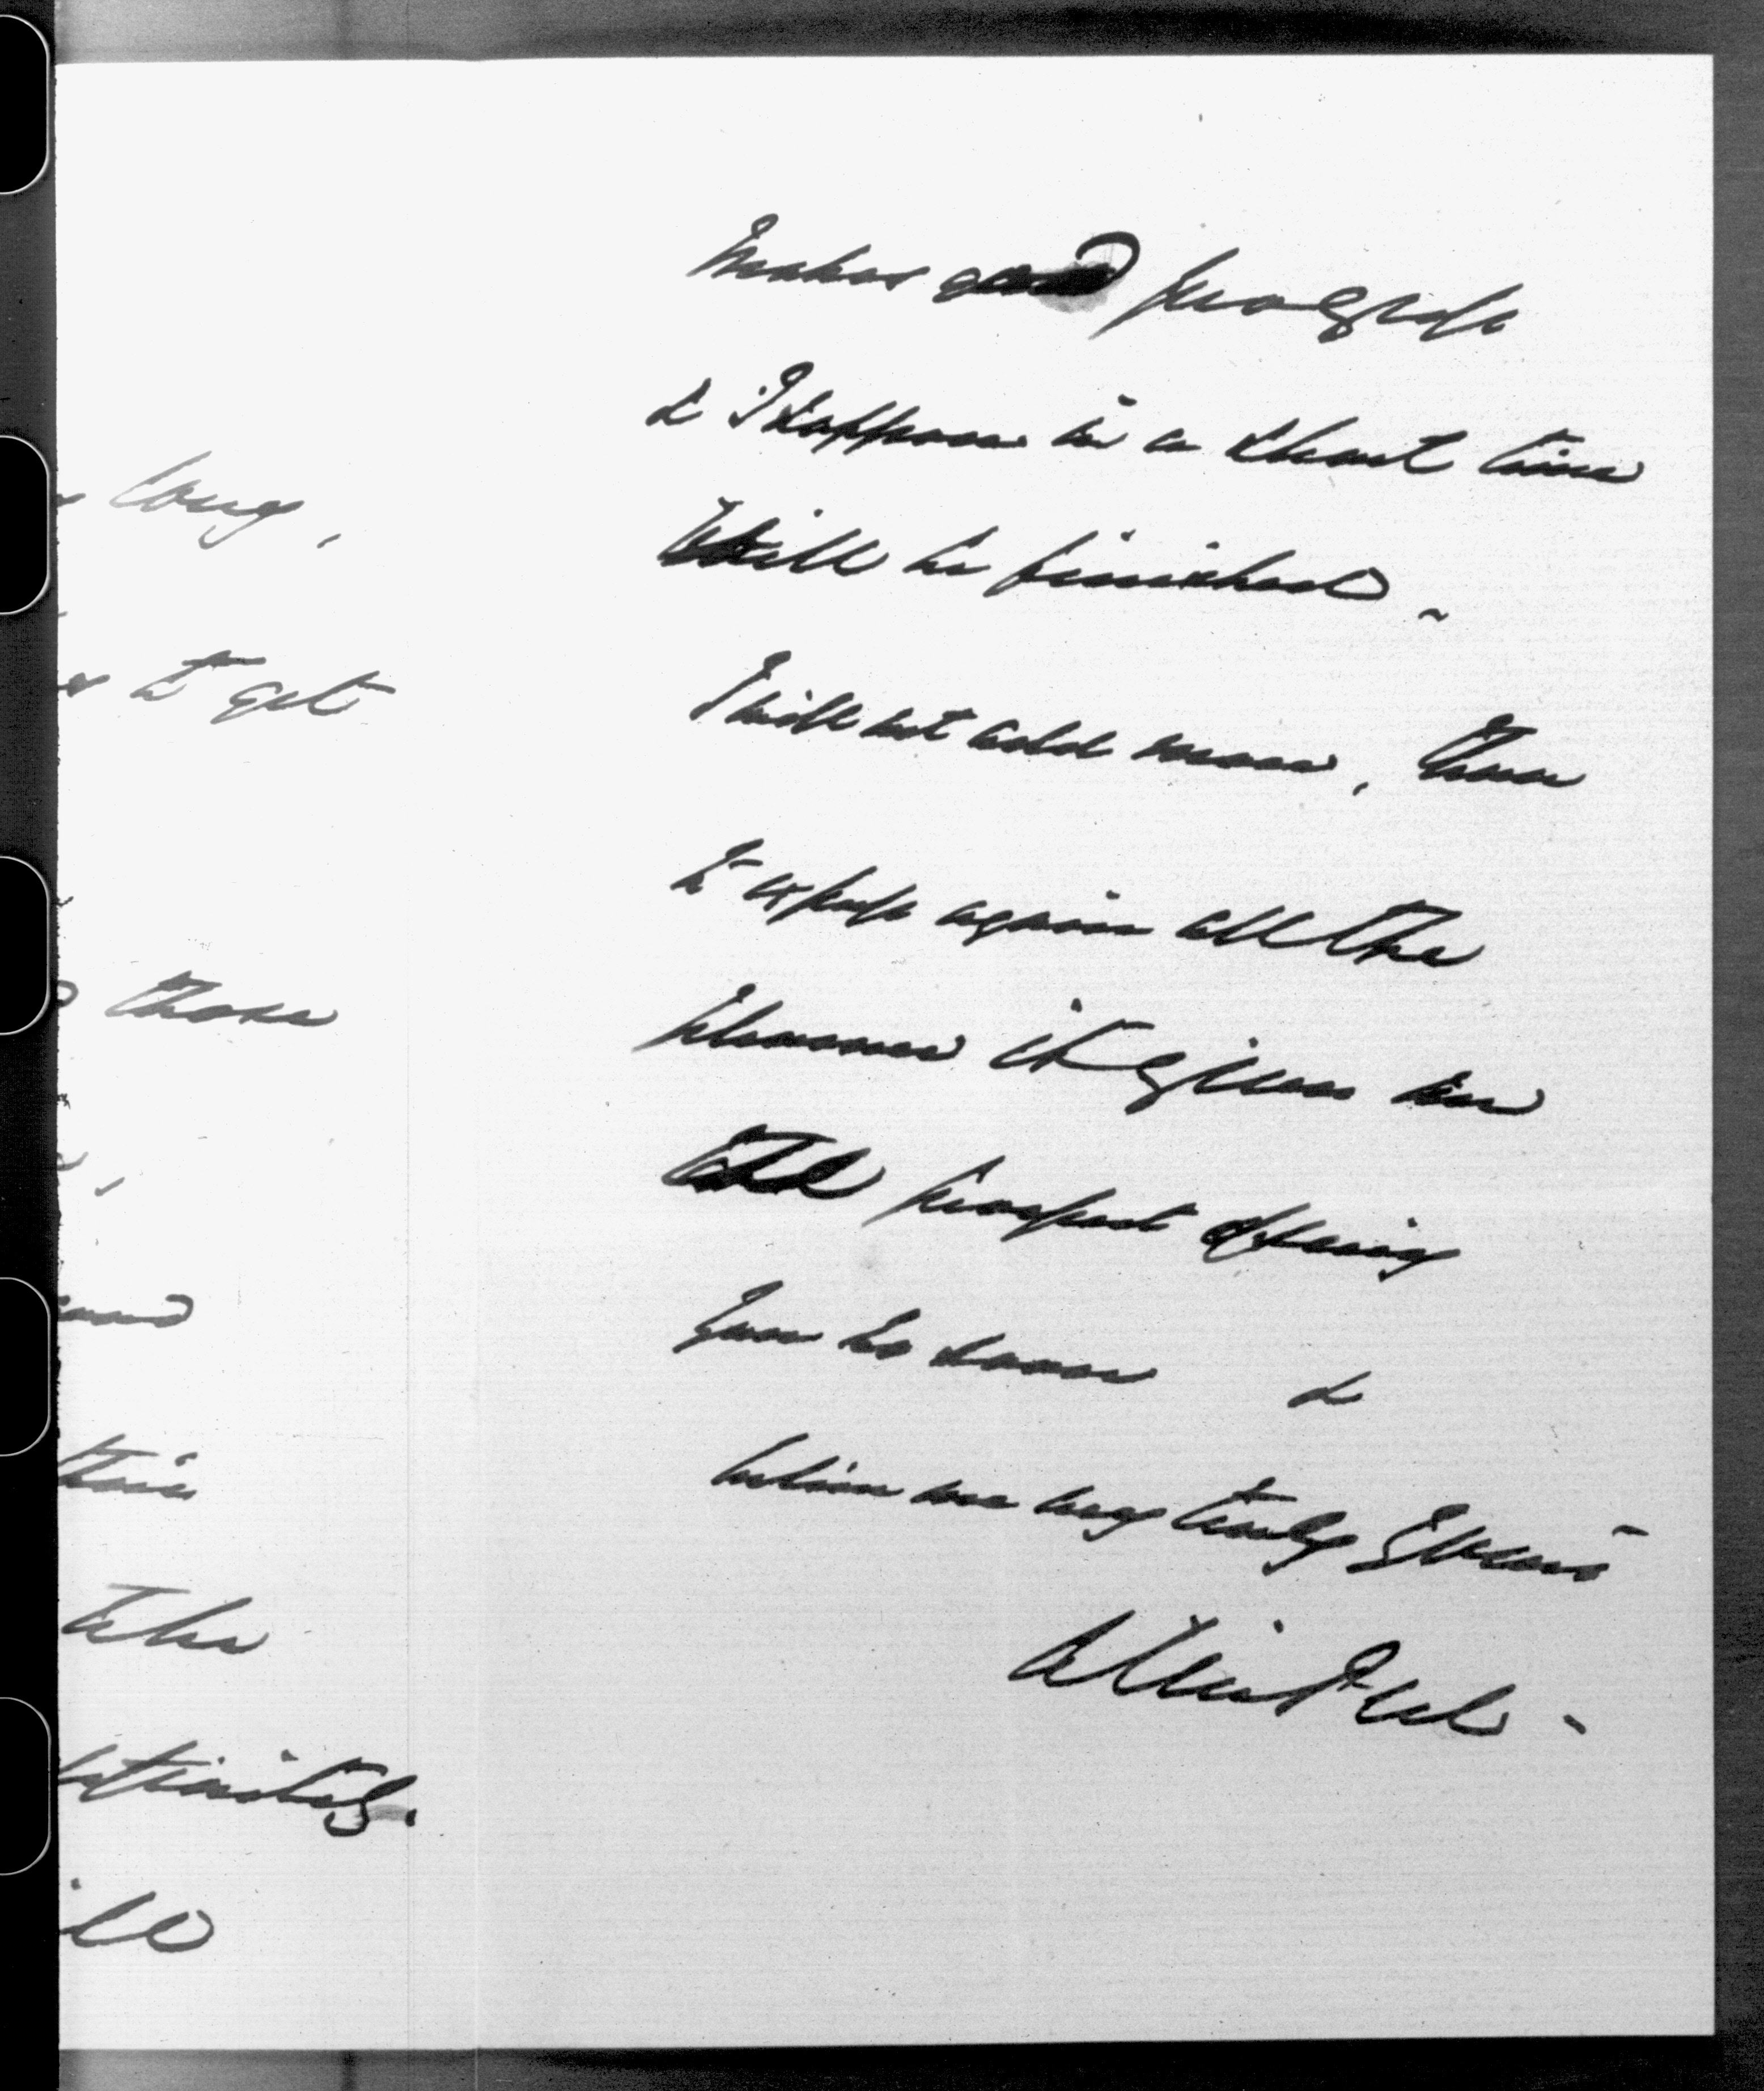 long,
to get
those
their
take
ill
makes good progress
& I suppose in a short time
will be finished -
I will not add more, than
to express again all the
pleasure it gives me
the prospect of seeing
you so soon &
believe me very truly Yours -